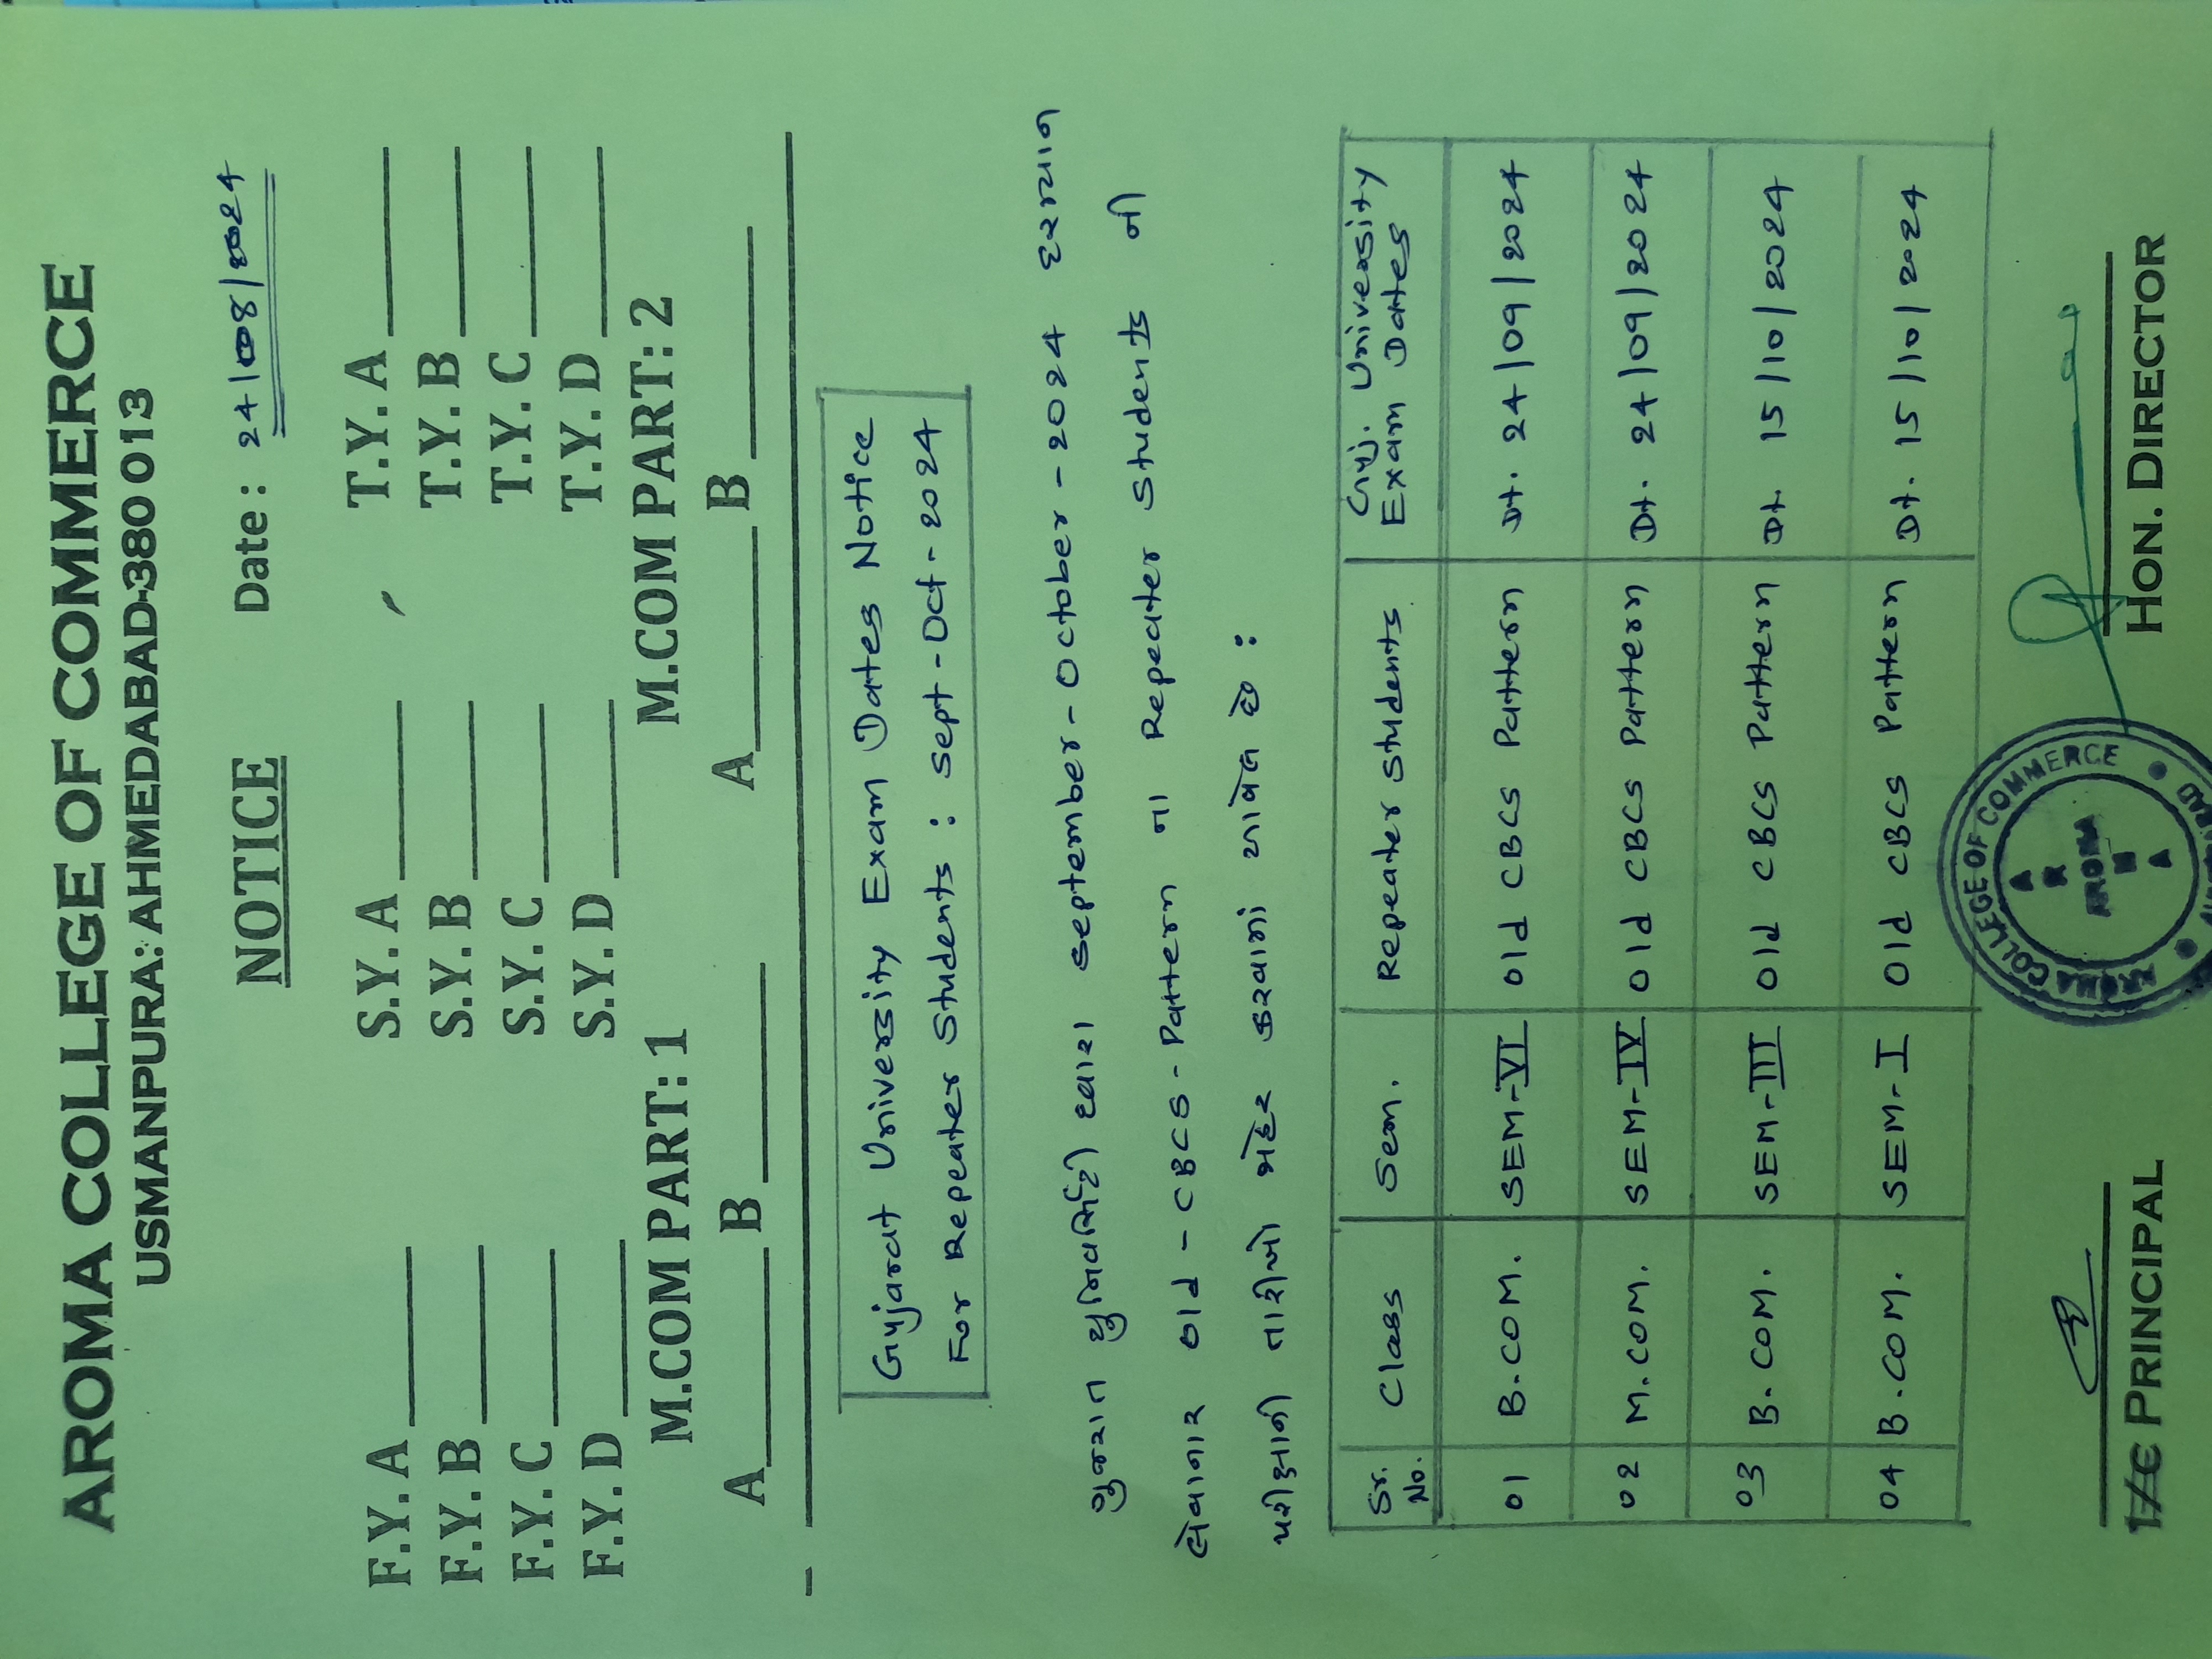 AROMA COLLEGE OF COMMERCE
USMANPURA: AHMEDABAD-380 013
NOTICE Date: 24/08/2024
F.Y. A S.Y. A T.Y. A
F.Y. B S.Y. B T.Y. B
F.Y. C S.Y. C T.Y. C
F.Y. D S.Y. D T.Y. D
M.COM PART: 1 M.COM PART: 2
A B A B
Gujarat University Exam Dates Notice
For Repeater Students : Sept-Oct-2024
ગુજરાત યુનિવર્સિટી દ્વારા September-October-2024 દરમ્યાન
લેવાનાર Old-CBCS-Pattern ના Repeater Students ની
પરીક્ષાની તારીખો જાહેર કરવામાં આવેલ છે :
Sr. No. Class Sem. Repeater Students Guj. University Exam Dates
01 B.COM. SEM-VI Old CBCS Pattern Dt. 24/09/2024
02 M.COM. SEM-IV Old CBCS Pattern Dt. 24/09/2024
03 B.COM. SEM-III Old CBCS Pattern Dt. 15/10/2024
04 B.COM. SEM-I Old CBCS Pattern Dt. 15/10/2024
I/C PRINCIPAL HON. DIRECTOR
AROMA COLLEGE OF COMMERCE
AROMA